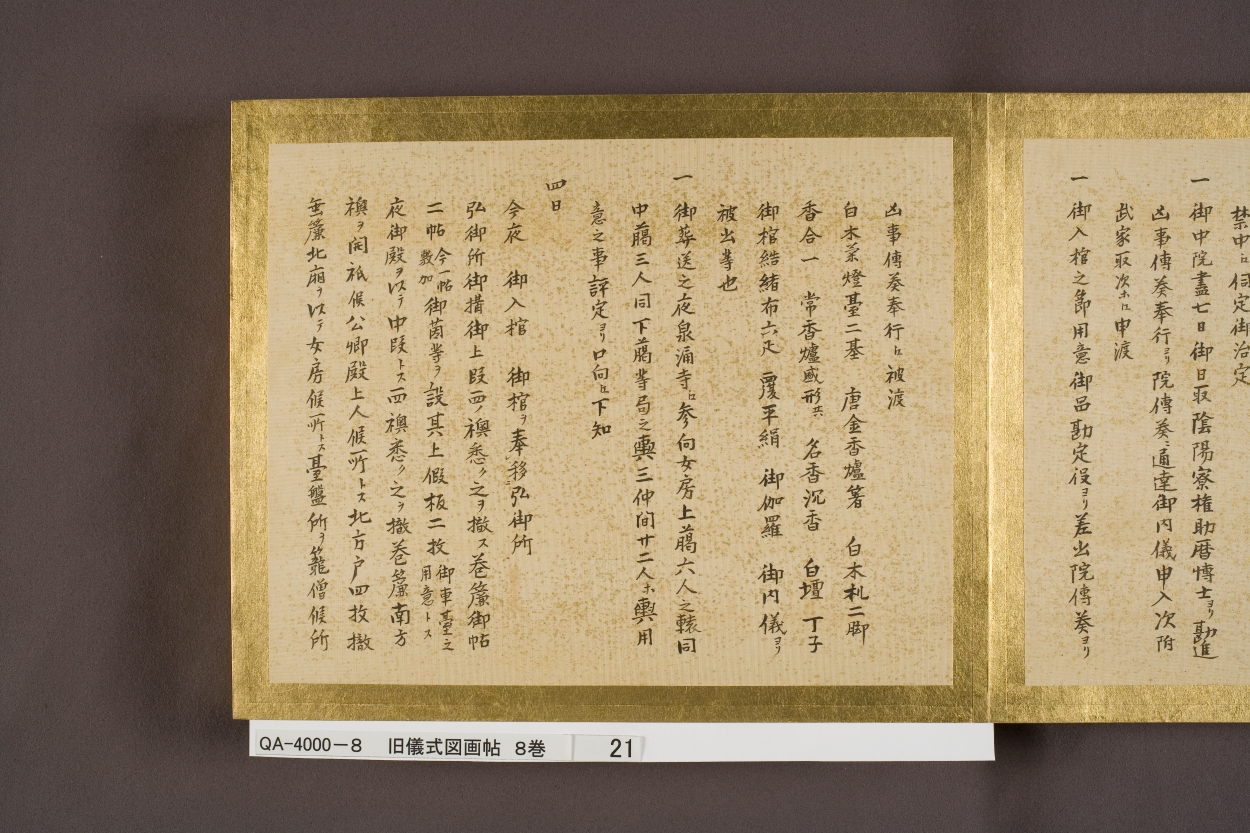 禁中ニ伺定御治定
一 御中院盡七日御日取陰陽寮権助暦博士ヨリ勘進
凶事傳奏奉行ヨリ院傳奏ニ通達御内儀申入次附
武家取次ホニ申渡
一 御入棺之節用意御品勘定役ヨリ差出院傳奏ヨリ
凶事傳奏奉行ニ被渡
白木菓燈臺二基 唐金香爐箸 白木札二脚
香合一 常香爐盛形共 名香沉香 白壇 丁子
御棺結緒布六疋 覆平絹 御伽羅 御内儀ヨリ
被出等也
一 御葬送之夜泉涌寺ニ参向女房上﨟六人之轅同
中﨟三人同下﨟等局之輿三仲间廿二人ホ輿用
意之事評定ヨリ口向ニ下知
四日
今夜 御入棺 御棺ヲ奉移弘御所
弘御所御搆御上段四ノ襖悉ク之ヲ撤ス巻簾御帖
二帖今一帖數加御茵等ヲ設其上假板二枚御車臺之用意トス
夜御殿ヲ以テ中段トス四襖悉ク之ヲ撤巻簾南方
襖ヲ闭祗候公卿殿上人候所トス北方戸四枚撤
垂簾北廂ヲ以テ女房候所トス臺盤所ヲ籠僧候所
QA-4000-8 旧儀式図画帖 8巻 21